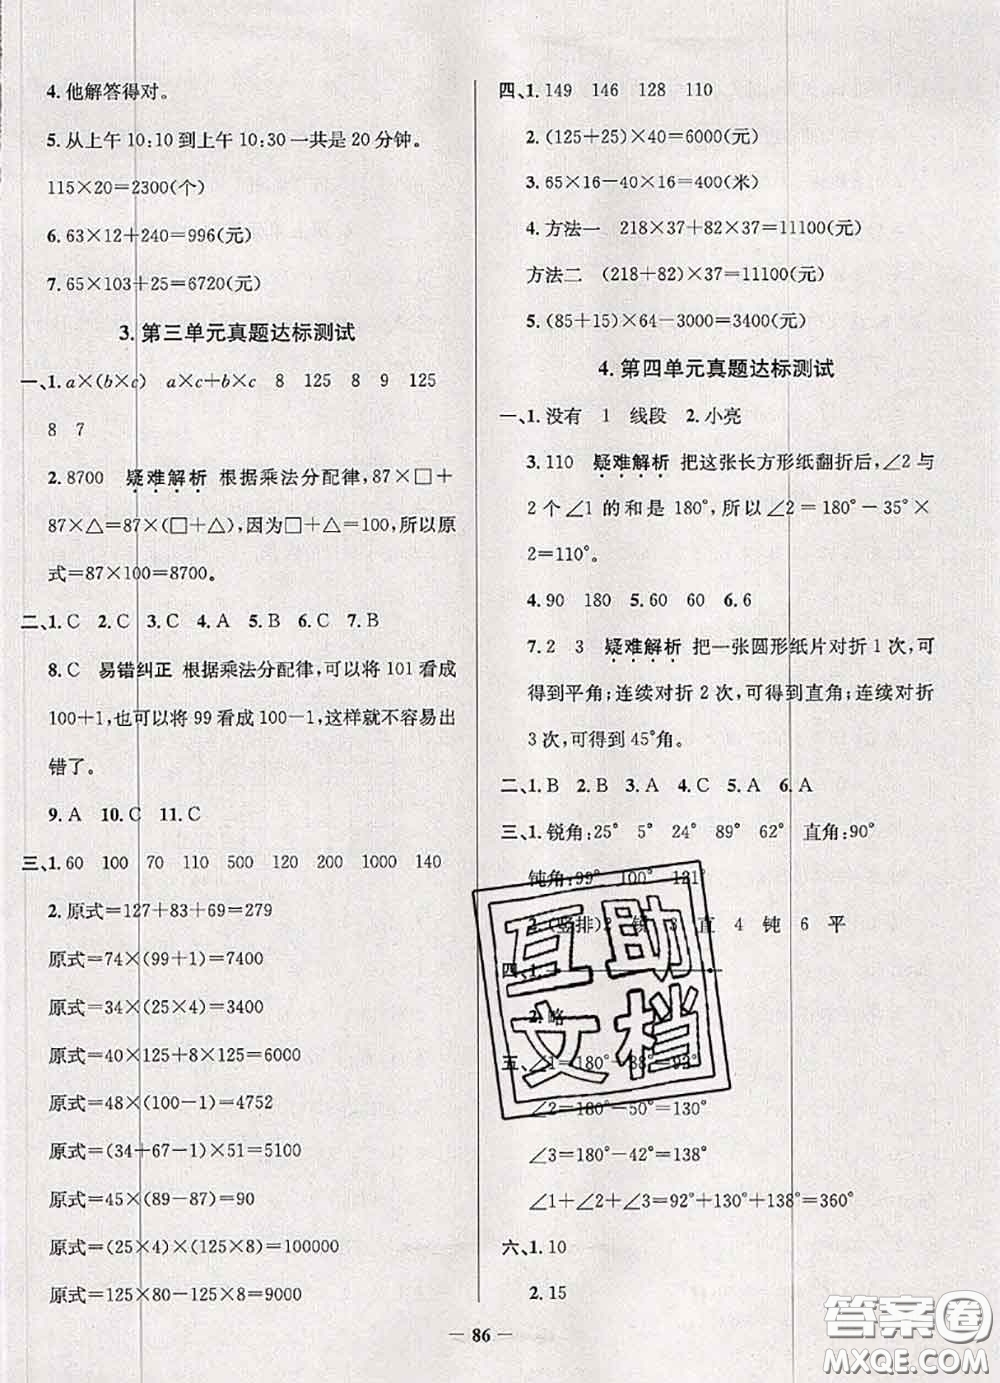 4. 他解答得对。
5. 从上午 10:10 到上午 10:30 一共是 20 分钟。
115×20=2300(个)
6. 63×12+240=996(元)
7. 65×103+25=6720(元)
3. 第三单元真题达标测试
一、1. a×(b×c) a×c+b×c 8 125 8 9 125
8 7
2. 8700 疑难解析 根据乘法分配律,87×□+
87×△=87×(□+△),因为□+△=100,所以原
式=87×100=8700。
二、1. C 2. C 3. C 4. A 5. B 6. C 7. B
8. C 易错纠正 根据乘法分配律,可以将 101 看成
100+1,也可以将 99 看成 100-1,这样就不容易出
错了。
9. A 10. C 11. C
三、1. 60 100 70 110 500 120 200 1000 140
2. 原式=127+83+69=279
原式=74×(99+1)=7400
原式=34×(25×4)=3400
原式=40×125+8×125=6000
原式=48×(100-1)=4752
原式=(34+67-1)×51=5100
原式=45×(89-87)=90
原式=(25×4)×(125×8)=100000
原式=125×80-125×8=9000
四、1. 149 146 128 110
2. (125+25)×40=6000(元)
3. 65×16-40×16=400(米)
4. 方法一 218×37+82×37=11100(元)
方法二 (218+82)×37=11100(元)
5. (85+15)×64-3000=3400(元)
4. 第四单元真题达标测试
一、1. 没有 1 线段 2. 小亮
3. 110 疑难解析 把这张长方形纸翻折后,∠2 与
2 个∠1 的和是 180°,所以∠2=180°-35°×
2=110°。
4. 90 180 5. 60 60 6. 6
7. 2 3 疑难解析 把一张圆形纸片对折 1 次,可
得到平角;连续对折 2 次,可得到直角;连续对折
3 次,可得到 45°角。
二、1. B 2. B 3. A 4. C 5. A 6. A
三、1. 锐角:25° 5° 24° 89° 62° 直角:90°
钝角:99° 100° 121°
2. (竖排)2 锐 3 直 4 钝 6 平
四、1.
2. 略
五、∠1=180°-88°=92°
∠2=180°-50°=130°
∠3=180°-42°=138°
∠1+∠2+∠3=92°+130°+138°=360°
六、1. 10
2. 15
86
互助
文档
答案卷
MXQE.COM